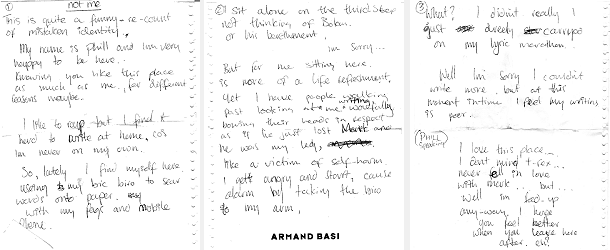 ①
not me
This is quite a funny re-count
of mistaken identity.
My name is Phill and I'm very
happy to be here.
Knowing you like this place
as much as me, for different
reasons maybe.
I like to rap but I find it
hard to write at home, cos
I'm never on my own.
So, lately I find myself here
using my bic biro to scar
words onto paper.
with my fags and mobile
②
I sit alone on the third step
not thinking of Bolan.
or his bereavement.
I'm sorry...
But for me sitting here.
is more of a life refreshment.
Yet I have people walking
past looking at me writing woefully
bowing their heads in respect
as if I've just lost Mark and
he was my lady,
like a victim of self-harm.
I get angry and start, cause
alarm by taking the biro
to my arm.
ARMAND BASI
③
What? I didn't really I
just carryed
on my lyric marathon.
Well I'm sorry I couldn't
write more. but at this
moment in time I feel my writing
is poor.
(Phill speaking)
I love this place...
I don't mind t-rex...
never fell in love
with mark... but...
Well I'm fed-up
any-way. I hope
you feel better
when you leave here
after. oh!